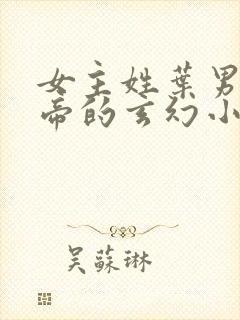 女主姓葉男
帝的玄幻小
吴蘇琳